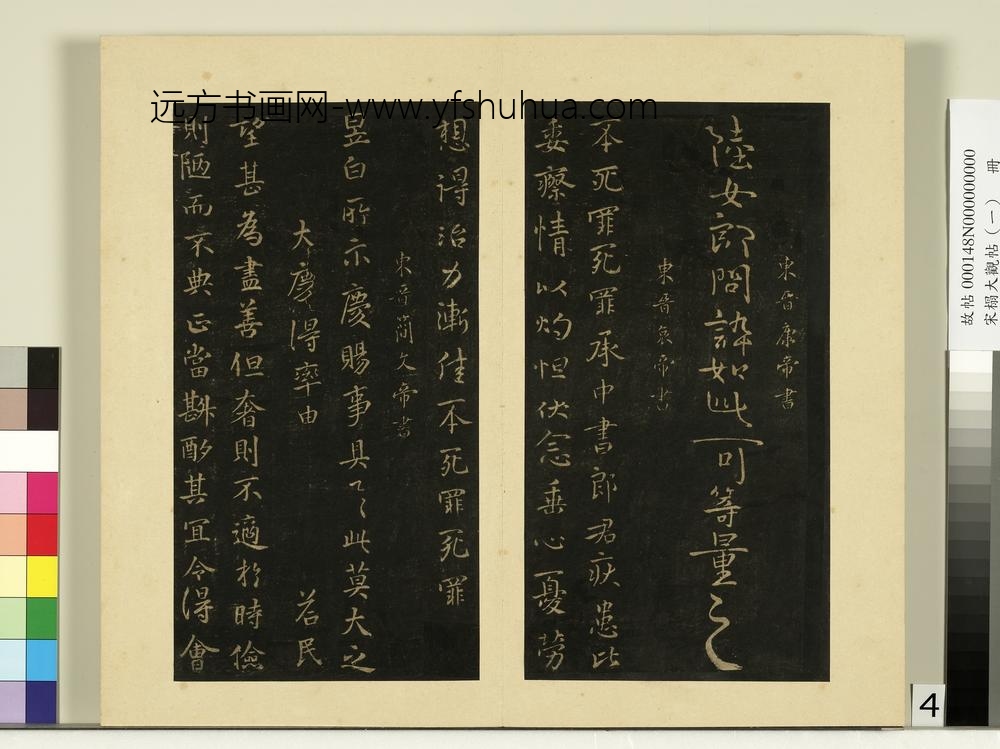 远方书画网-www.yfshuhua.com
東晉康帝書
陸女郎問訴如此可等量之
東晉哀帝書
丕死罪死罪承中書郎君疾患比
委瘵情以灼怛伏念垂心憂勞
想得治力漸佳丕死罪死罪
東晉簡文帝書
昱白所示慶賜事具了此莫大之
大慶得率由 若民
望甚為盡善但奢則不適於時儉
則陋而不典正當斟酌其宜令得會
故帖 000148N000000000
宋榻大觀帖（一） 冊
4